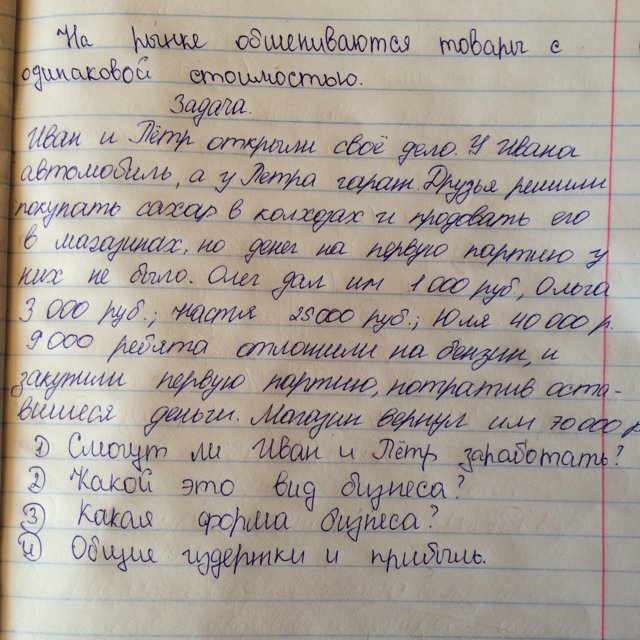 На рынке обшениваются товары с
одинаковой стоимостью.
Задача.
Иван и Пётр открыли своё дело. У Ивана
автомобиль, а у Петра гараж. Друзья решили
покупать сахар в колхозах и продовать его
в магазинах, но денег на первую партию у
них не было. Олег дал им 1 000 руб, Ольга
3 000 руб.; Настя 25000 руб.; Юля 40 000 р.
9 000 ребята отложили на бензин, и
закупили первую партию, потратив оста-
вшиеся деньги. Магазин вернул им 70 000 р
1) Смогут ли Иван и Пётр заработать?
2) Какой это вид бизнеса?
3) Какая форма бизнеса?
4) Общие издертки и прибыль.